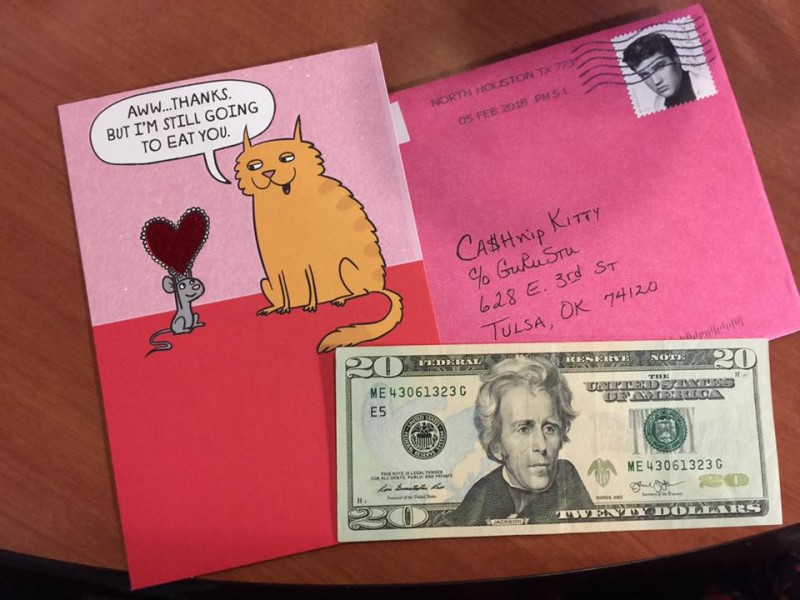 AWW...THANKS.
BUT I'M STILL GOING
TO EAT YOU.
NORTH HOUSTON TX 773
05 FEB 2018 PM 5 L
CA$Hnip KITTY
c/o GuRuStu
628 E. 3rd ST
TULSA, OK 74120
20 FEDERAL RESERVE NOTE 20
THE
UNITED STATES
OF AMERICA
ME 43061323 G
E5
THIS NOTE IS LEGAL TENDER
FOR ALL DEBTS, PUBLIC AND PRIVATE
Treasurer of the United States
ME 43061323 G
20
SERIES 2013
Secretary of the Treasury
20 JACKSON TWENTY DOLLARS